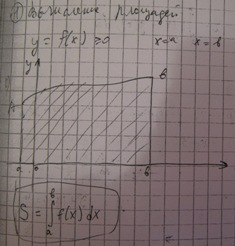 Вычисление площадей
y = f(x) ≥ 0 x=a x=b
y
A
B
a
b
S = ∫ₐᵇ f(x) dx